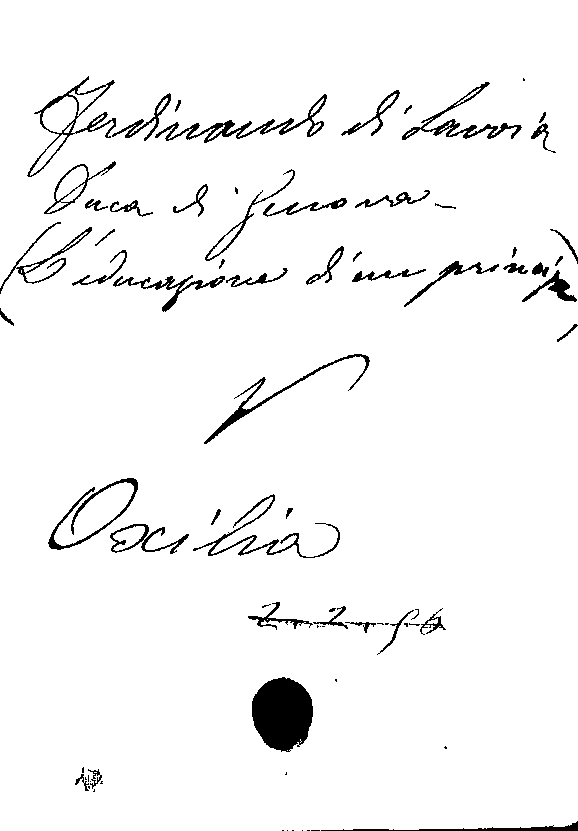 Ferdinando di Savoia
Duca di Genova -
(L'educazione di un principe)
V
Oxilia
2.2.56